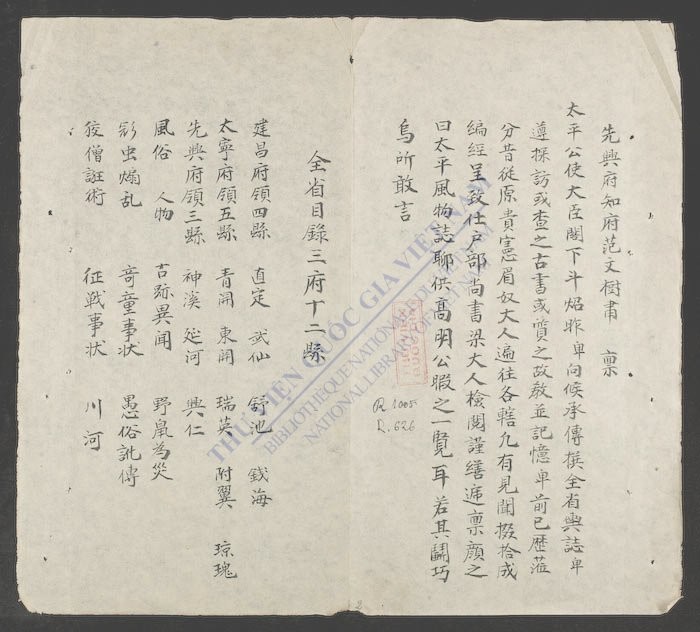 先興府知府范文樹肅 稟
太平公使大臣閣下斗炤昨卑向候承傳撰全省輿誌卑
遵採訪或查之古書或質之故教並記憶卑前已歷蒞
分昔從原貴憲眉奴大人遍往各轄凢有見聞掇拾成
編經呈致仕戶部尚書梁大人檢閱謹繕遞稟顏之
曰太平風物誌聊供髙明公暇之一覽耳若其鬪巧
烏所敢言
全省目錄三府十二縣
建昌府領四縣 直定 武仙 舒池 錢海
太寧府領五縣 青關 東關 瑞英 附翼 瓊瑰
先興府領三縣 神溪 延河 興仁
風俗 人物 古跡異聞 野鼠為災
虫煽乱 奇童事状 愚俗訛傳
狡僧誑術 征戦事状 川河
THƯ VIỆN QUỐC GIA VIỆT NAM
BIBLIOTHEQUE NATIONALE DU VIETNAM
NATIONAL LIBRARY OF VIETNAM
R. 1005
R. 626
2